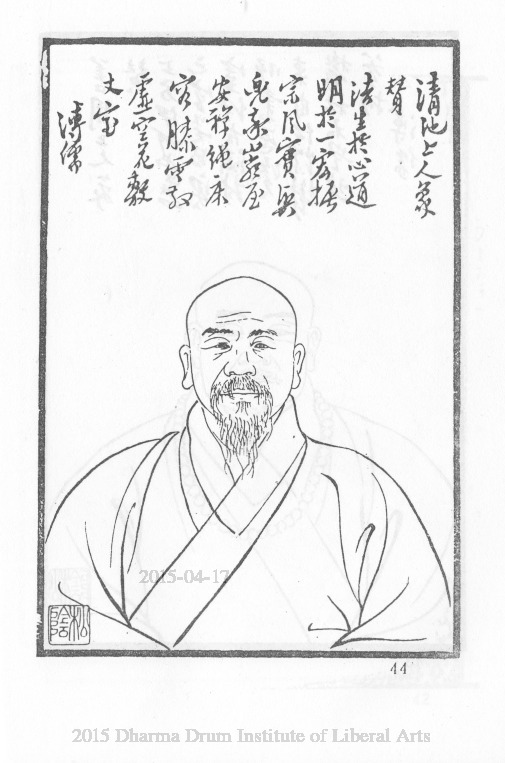 清池上人象
贊
法生於心道
明於一宏振
宗風實
山巖屋
安禪繩床
容膝雲散
虛空花敷
丈室
溥儒
松陰
2015-04-17
44
2015 Dharma Drum Institute of Liberal Arts